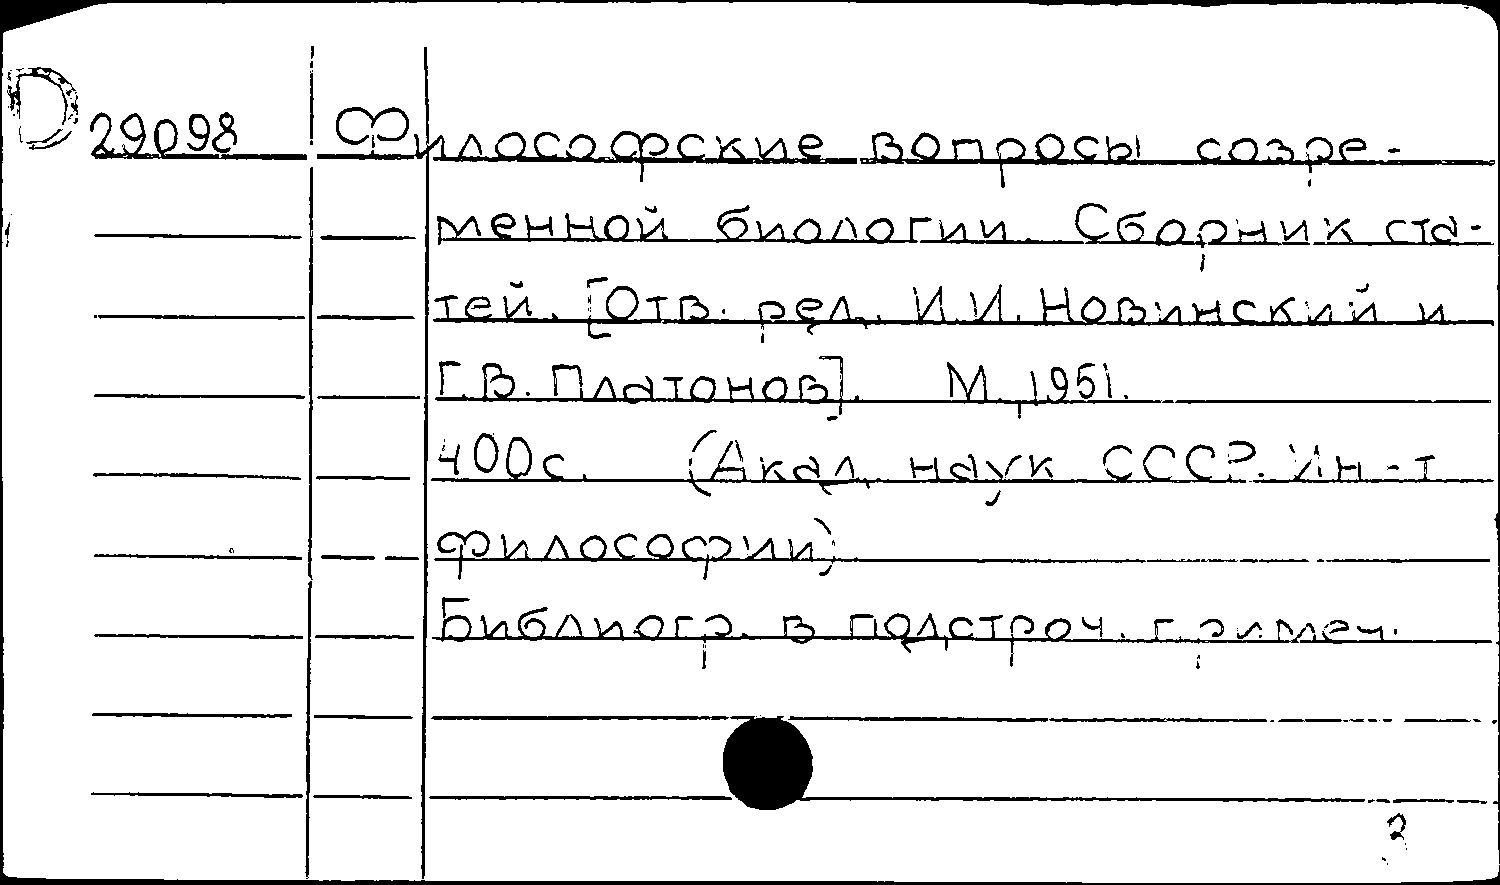 D 29098 Философские вопросы совре-
менной биологии. Сборник ста-
тей. [Отв. ред. И.И. Новинский и
Г.В. Платонов]. М., 1951.
400с. (Акад. наук СССР. Ин-т
философии)
Библиогр. в подстроч. примеч.
3